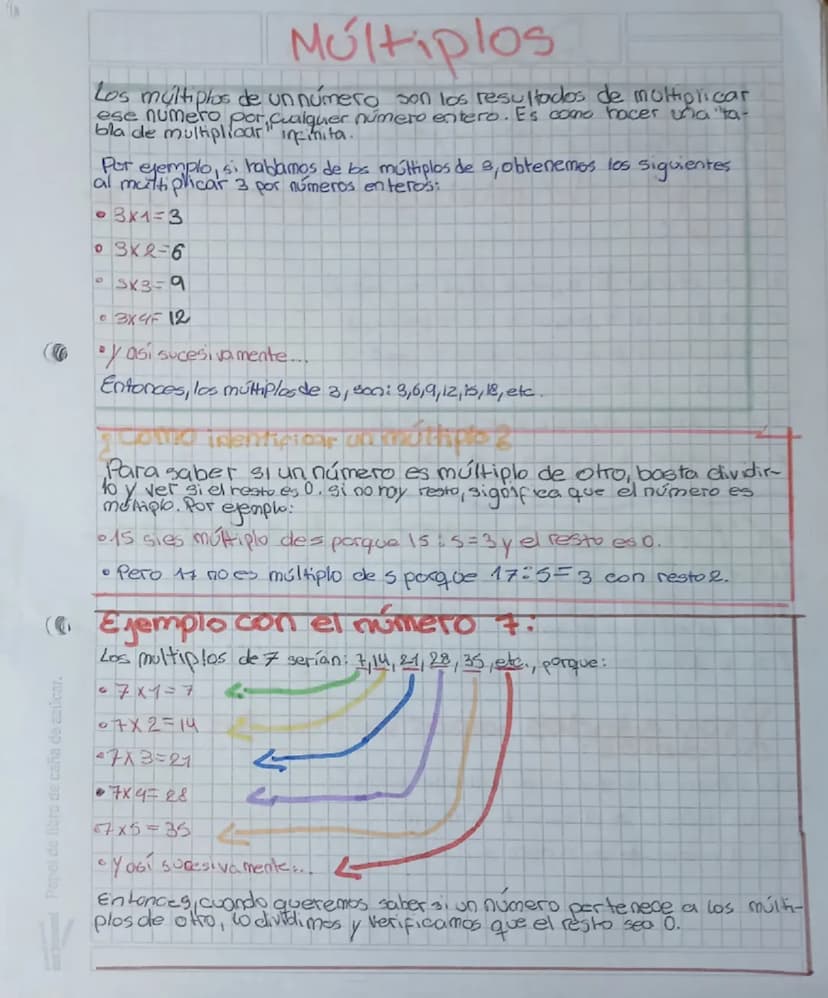 Múltiplos
Los múltiplos de un número son los resultados de multiplicar
ese numero por cualquier número entero. Es como hacer una "ta-
bla de multiplicar" infinita.
Por ejemplo, si hablamos de los múltiplos de 3, obtenemos los siguientes
al multiplicar 3 por números enteros:
• 3x1=3
• 3x2=6
• 3x3=9
• 3x4=12
• y así sucesivamente...
Entonces, los múltiplos de 3, son: 3,6,9,12,15,18, etc.
¿Como identificar un múltiplo?
Para saber si un número es múltiplo de otro, basta dividir-
lo y ver si el resto es 0. si no hay resto, significa que el número es
múltiplo. Por ejemplo:
• 15 si es múltiplo de 5 porque 15:5=3 y el resto es 0.
• Pero 17 no es múltiplo de 5 porque 17:5=3 con resto 2.
Ejemplo con el número 7:
Los multiplos de 7 serían: 7,14,21,28,35,etc., porque:
• 7x1=7
• 7x2=14
• 7x3=21
• 7x4=28
• 7x5=35
• y así sucesivamente...
Entonces, cuando queremos saber si un número pertenece a los múlti-
plos de otro, lo dividimos y verificamos que el resto sea 0.
Papel de libro de caña de azúcar.